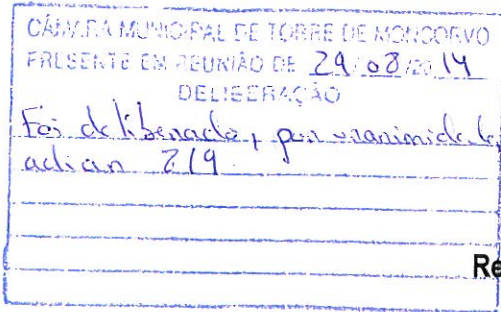 CÂMARA MUNICIPAL DE TORRE DE MONCORVO
PRESENTE EM REUNIÃO DE 29/08/2014
DELIBERAÇÃO
Foi deliberado, por unanimidade,
adiar 2/9.
Re